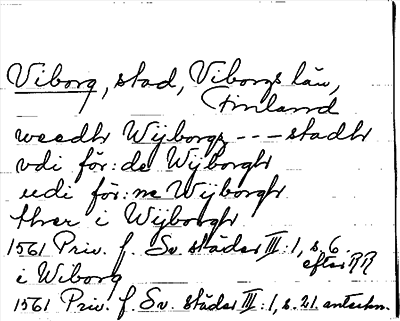 Viborg, stad, Viborgs län,
Finland
weedhr Wijborgz --- stadhr
vdi för:de Wijborghr
udi för:ne Wijborghr
thær i Wijborghr
1561 Priv. f. Sv. städer III:1, s. 6.
efter RR
i Wiborg
1561 Priv. f. Sv. städer III:1, s. 21. anteckn.